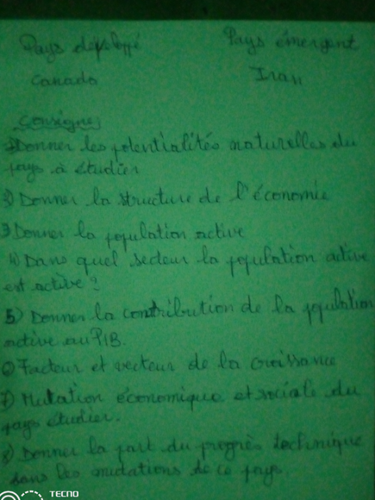 Pays développé Pays émergent
Canada Iran
Consignes
1) Donner les potentialités naturelles du
pays à étudier
2) Donner la structure de l'économie
3) Donner la population active
4) Dans quel secteur la population active
est active ?
5) Donner la contribution de la population
active au PIB.
6) Facteur et vecteur de la croissance
7) Mutation économique et sociale du
pays étudier.
8) Donner la part du progrès technique
dans les mutations de ce pays.
TECNO